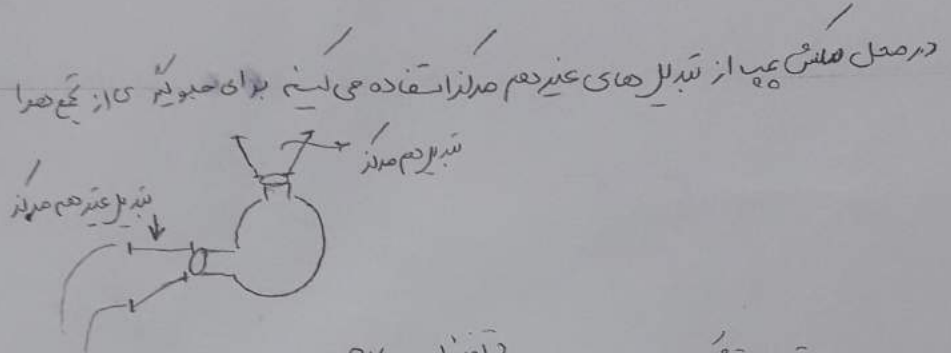 در محل مکش پمپ از تبدیل های غیر هم مرکز استفاده می کنیم برای جلوگیری از تجمع هوا
تبدیل هم مرکز
تبدیل غیر هم مرکز